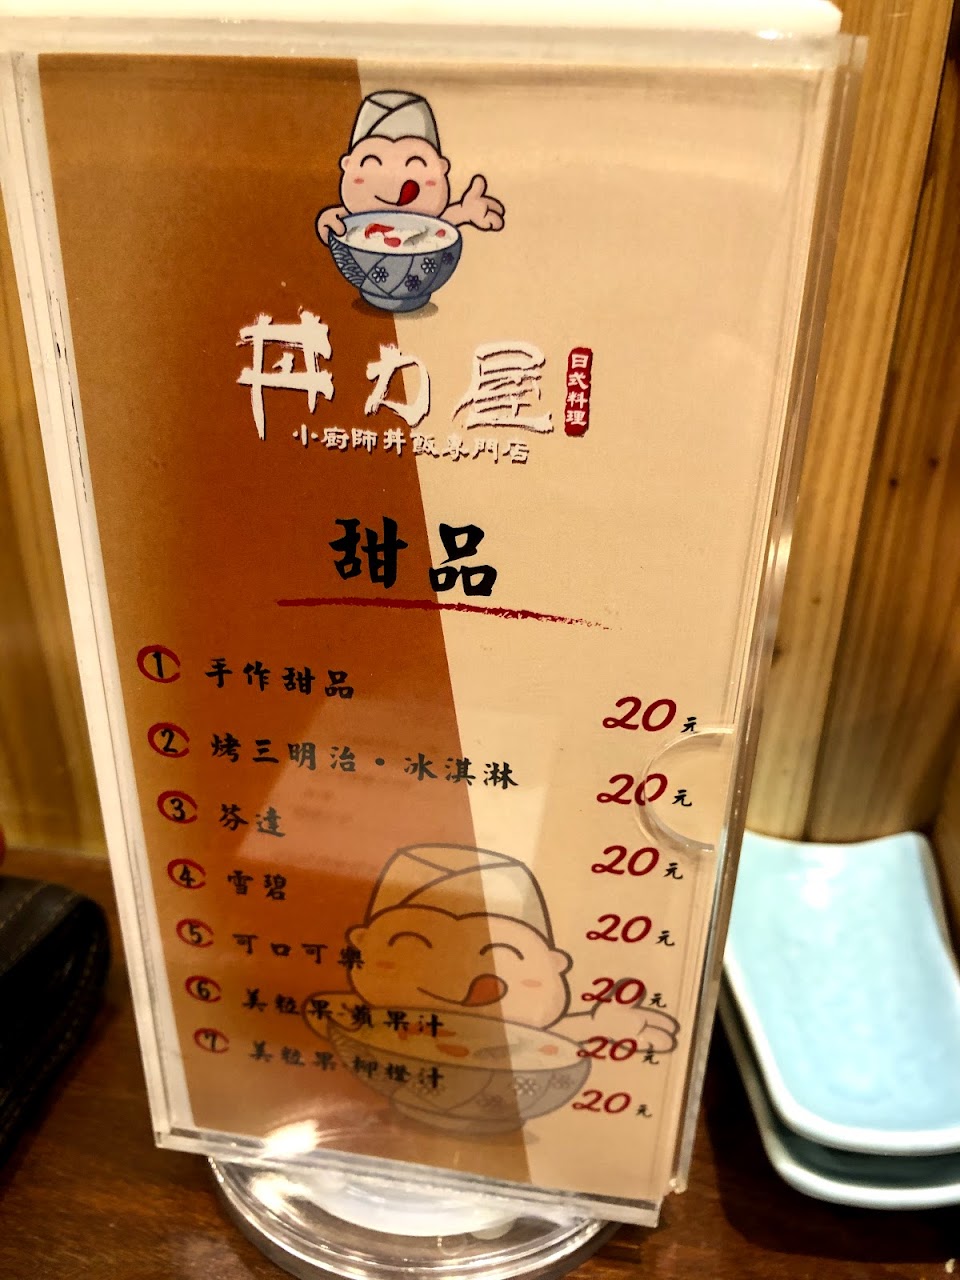 丼力屋
日式料理
小廚師丼飯專門店
甜品
1 手作甜品 20元
2 烤三明治・冰淇淋 20元
3 芬達 20元
4 雪碧 20元
5 可口可樂 20元
6 美粒果 蘋果汁 20元
7 美粒果 柳橙汁 20元